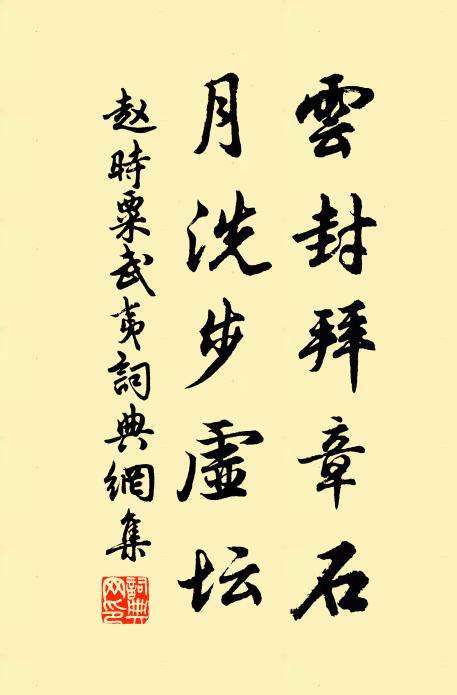 雲封拜章石
月洗步虛坛
赵時粟武夷詞典網集
詞典网印